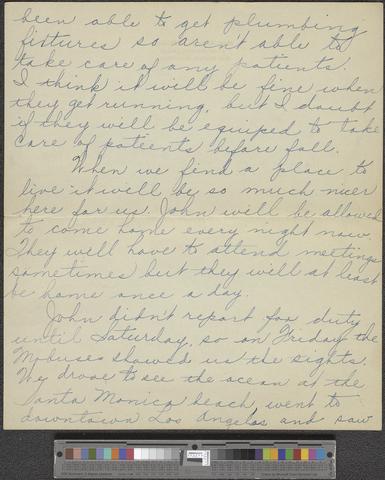 been able to get plumbing
fixtures so aren't able to
take care of any patients.
I think it will be fine when
they get running, but I doubt
if they will be equiped to take
care of patients before fall.
When we find a place to
live it will be so much nicer
here for us. John will be allowed
to come home every night now.
They will have to attend meetings
sometimes but they will at least
be home once a day.
John didn't report for duty
until Saturday, so on Friday the
Mobuses showed us the sights.
We drove to see the ocean at the
Santa Monica beach, went to
downtown Los Angelas and saw